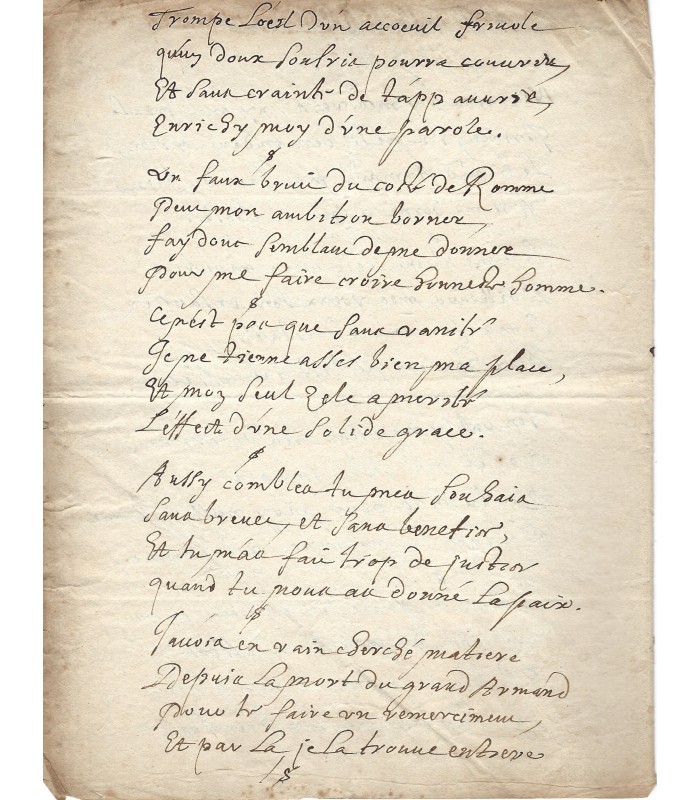 Trompe L'oeil d'un accoeuil friuole
qu'un doux soulris pourra couurir,
Et sans crainte de t'appauurir,
Enrichy moy d'vne parole.
$
Vn faux bruit du costé de Romme
Peut mon ambition borner,
fay donc semblant de me donner
Pour me faire croire honneste homme.
$
Ce nest pas que sans vanité
Je ne tienne assés bien ma place,
Et moy seul Zele a merité
L'effect d'vne solide grace.
$
Aussy comblés tu mes souhais
Sans breuet, et sans benefice,
Et tu m'as fait trop de justice
quand tu nous as donné La paix.
$
J'auois en vain cherché matiere
Depuis La mort du grand Armand
Pour te faire vn remerciment,
Et par La je La trouue entiere
$